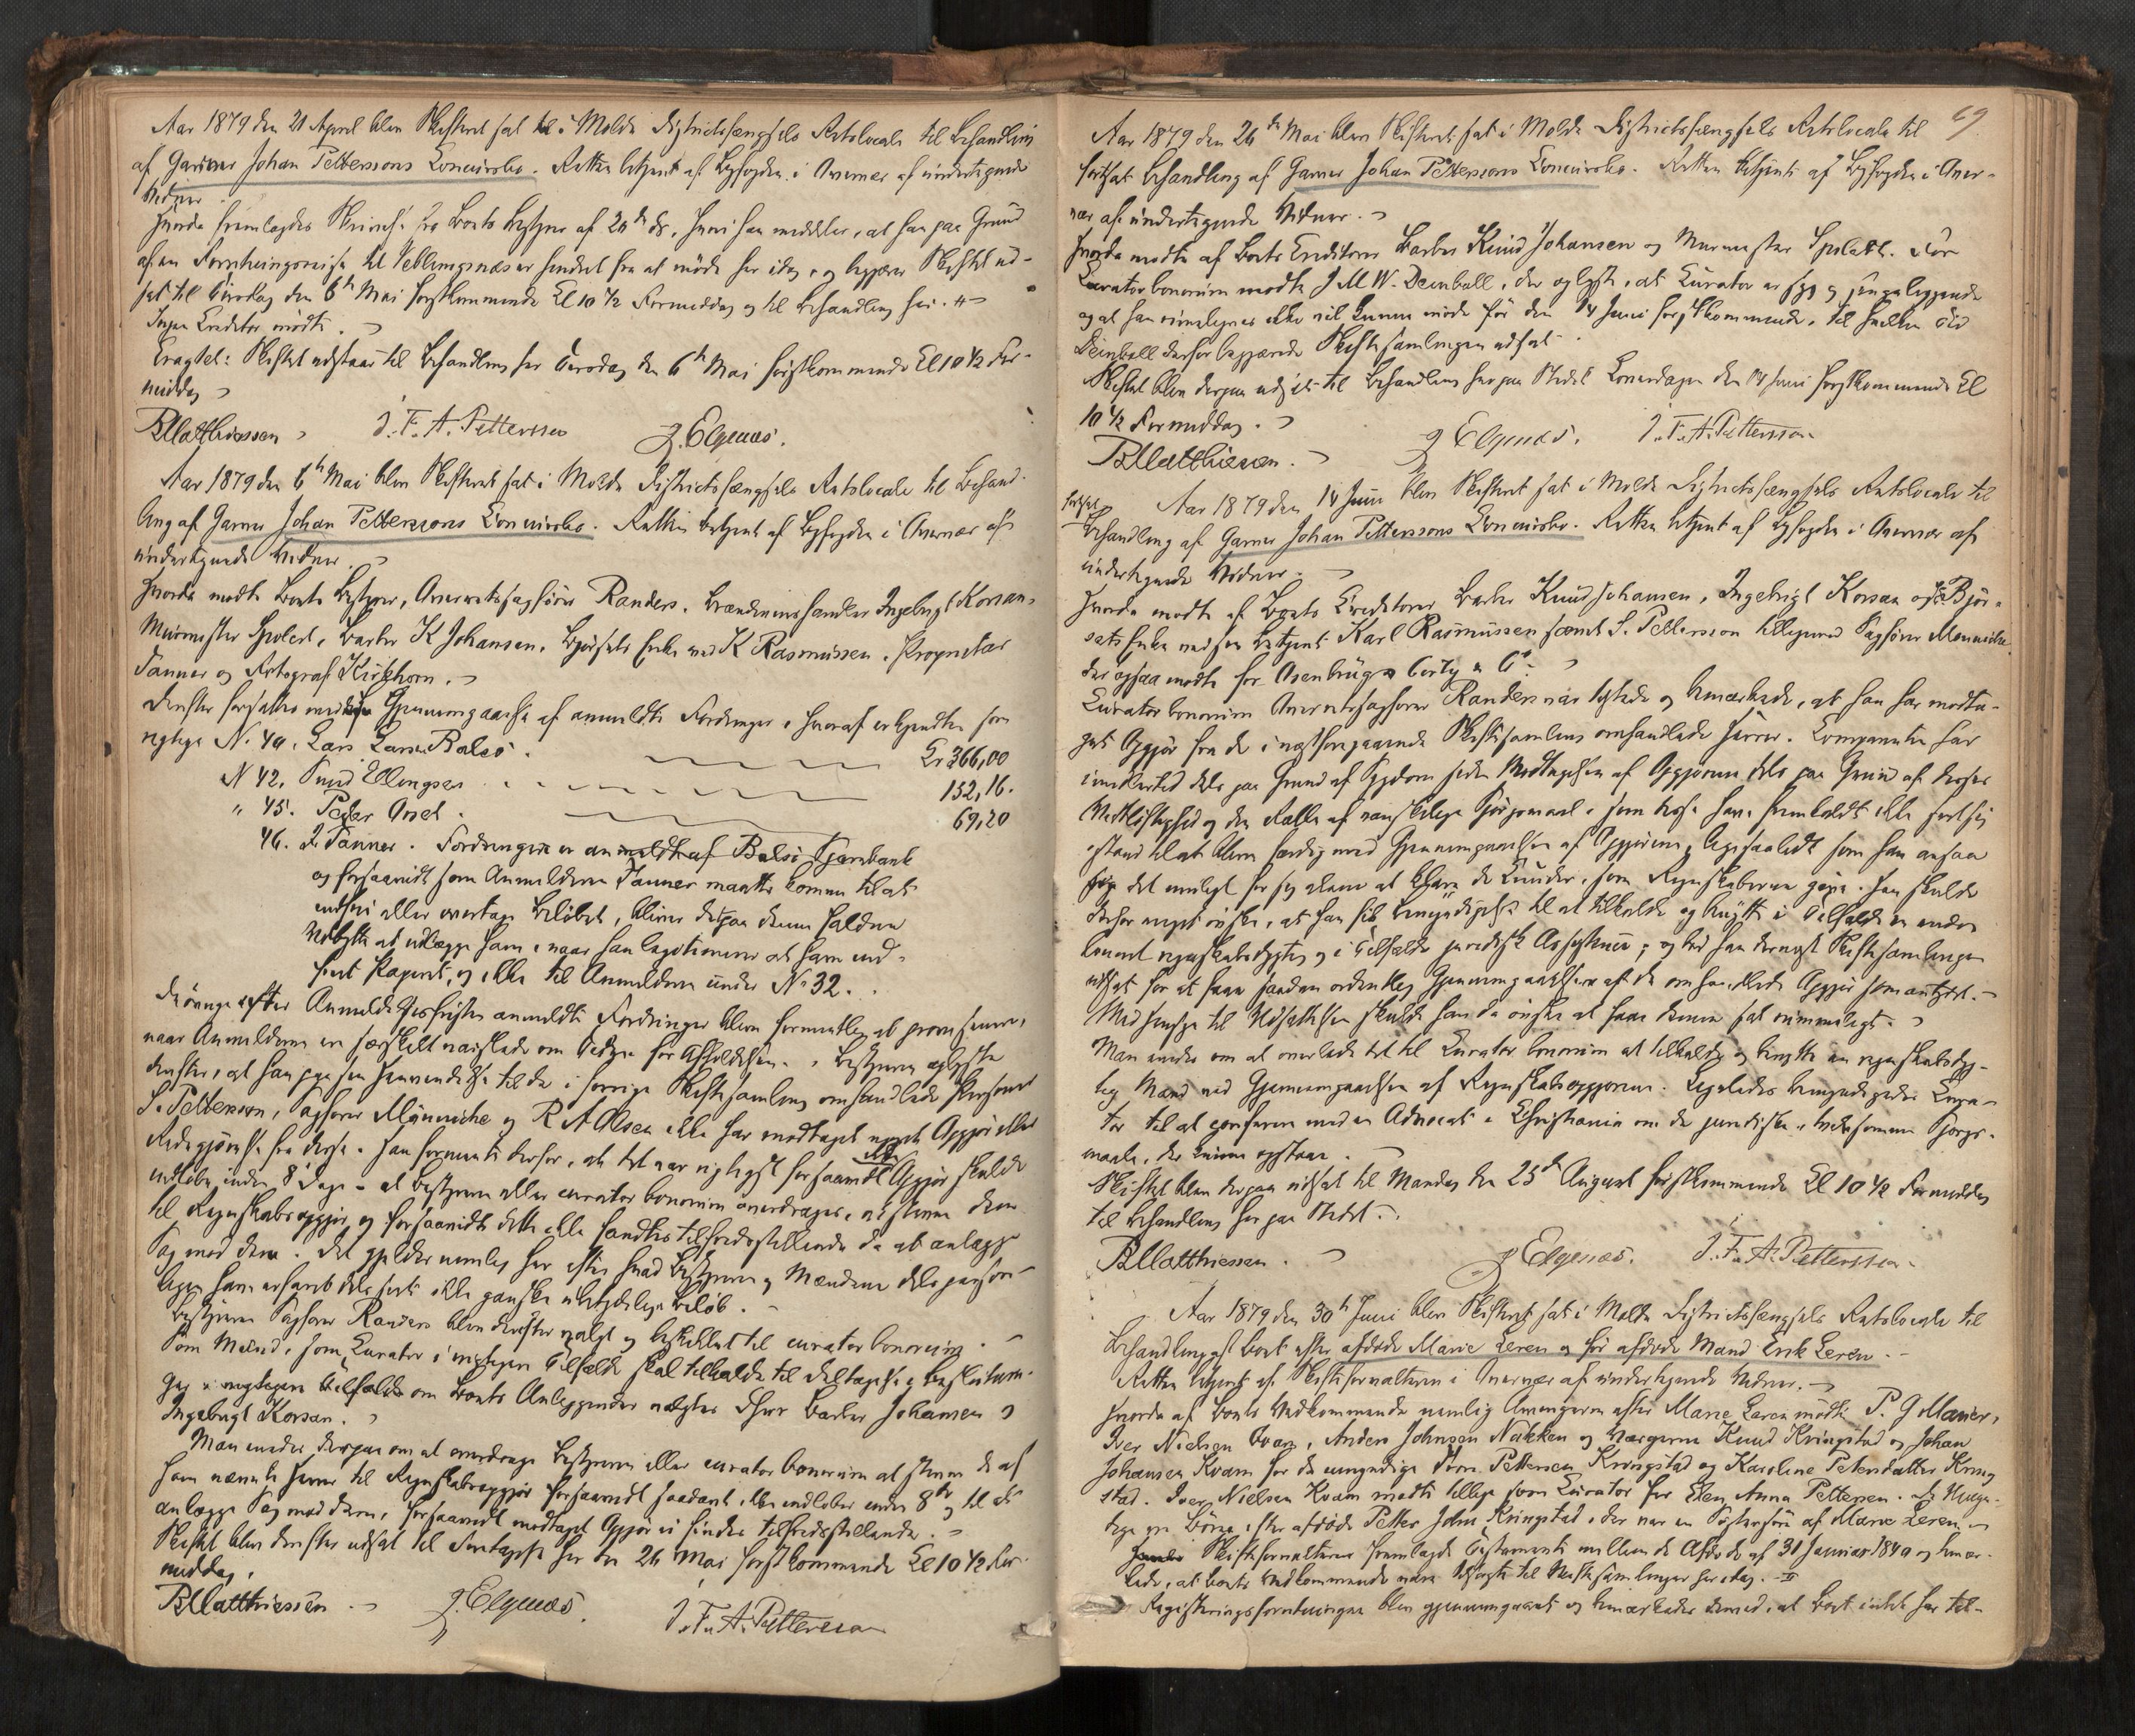 Aar 1879 den 21 April blev Skifteret sat i Molde Districtsfængsels Retslocale til Behandling
af Garver Johan Petterssons Concursbo. Retten betjent af Byfogden i Overvær af undertegnede
Vidner
Hvorda fremlagdes Skrivelse fra Boets Bestyrer af 20de ds, hvori han meddeler, at han paa Grund
af en Forretningsreise til Veblungsnæs er hindret fra at møde her idag, og begjærer Skiftet ud-
sat til Tirsdag den 6te Mai førstkommende Kl 10 1/2 Formiddag og til Behandling her.
Ingen Creditor mødte.
Eragtet: Skiftet udstaar til Behandling her Tirsdag den 6te Mai førstkommende Kl 10 1/2 For-
middag
B Matthiessen J. F. A. Pettersson J. Elgenæs.
Aar 1879 den 6te Mai blev Skifteret sat i Molde Districtsfængsels Retslocale til Behand-
ling af Garver Johan Petterssons Concursbo. Retten betjent af Byfogden i Overvær af
undertegnede Vidner.
Hvorda mødte Boets Bestyrer, Overretssagfører Randers. Brændevinshandler Ingebrigt Korsan,
Murmester Spolert, Barber K Johansen, Bjørsets Enke ved K Rasmussen. Proprietær
Tanner og Fotograf Kirkhorn.
Derefter fortsattes med Gjennemgaaelse af anmeldte Fordringer, hvoraf erkjendtes som
rigtige N. 40. Lars Larsen Balsø. Kr 366,00
N 42. Knud Ellingsen 152,16.
" 45. Peder Oset. 69,20
46. J. Tanner. Fordringen er anmeldt af Bolsø Sparebank
og forsaavidt som Anmelderen Tanner maatte komme til at
indfri eller overtage Beløbet, bliver det paa denne faldne
Udbytte at udlægge ham, naar han legitimerer at have ind-
friet Papiret, og ikke til Anmelderen under No 32.
De øvrige efter Anmeldelsesfristen anmeldte Fordringer bleve
naar Anmelderne ere særskilt varslede om Tiden for Afholdelsen. Bestyreren oplyste
derefter, at han paa sin Henvendelse til de i forrige Skiftesamling omhandlede Personer
S. Pettersson, Sagfører Mønniche og R A Olsen ikke har modtaget noget Opgjør eller
Redegjørelse fra disse. Han formente derfor, at det var rigtigst forsaavidt ikke Opgjør skulde
indløbe inden 8 Dage - at Bestyreren eller curator bonorum overdrages, at stevne dem
til Regnskabsopgjør, og forsaavidt dette ikke fandtes tilfredsstillende da at anlægge
Sag mod dem. Det gjelder nemlig her efter hvad Bestyreren og Mændene dels person-
ligen have erfaret dels hørt ikke ganske ubetydelige Beløb.
Bestyreren Sagfører Randers blev derefter valgt og beskikket til curator bonorum.
Som Mænd, som Curator i vigtigere Tilfælde skal tilkalde til Deltagelse i Beslutnin-
ger i vigtigere Tilfælde om Boets Anliggender valgtes Dhrr Barber Johansen
Ingebrigt Korsan.
Man enedes derpaa om at overdrage Bestyreren eller curator bonorum at stevne de af
ham nævnte Herrer til Regnskabsopgjør forsaavidt saadant ikke indløber inden 8te og til at
anlægge Sag mod dem, forsaavidt modtaget Opgjør ei findes tilfredsstillende.
Skiftet blev derefter udsat til Foretagelse her den 26 Mai førstkommende Kl 10 1/2 For-
middag.
B Matthiessen J. Elgenæs J. F. A. Pettersson
69
Aar 1879 den 26de Mai blev Skifteret sat i Molde Districtsfængsels Retslocale til
fortsat Behandling af Garver Johan Petterssons Concursbo. Retten betjent af Byfogden i Over-
vær af undertegnede Vidner.
Hvorda mødte af Boets Creditorer Barber Knud Johansen og Murmester Spolert. For
Curator bonorum mødte J M W. Deinboll, der oplyste, at Curator er syg og sengeliggende
og at han rimeligvis ikke vil kunne møde før den 14 Juni førstkommende, til hvilken Tid
Deinboll derfor begjærede Skiftesamlingen udsat.
Skiftet blev derpaa udsat til Behandling her paa Stedet Løverdagen den 14 Juni førstkommende Kl
10 1/2 Formiddag.
B Matthiessen. J Elgenæs. J. F. A. Pettersson
fortsat Aar 1879 den 14 Juni blev Skifteret sat i Molde Districtsfængsels Retslocale til
Behandling af Garver Johan Petterssons Concursbo. Retten betjent af Byfogden i Overvær af
undertegnede Vidner.
Hvorda mødte af Boets Creditorer Barber Knud Johansen, Ingebrigt Korsan og Bjør-
sets Enke ved sin Betjent Karl Rasmussen samt S. Pettersson tilligemed Sagfører Mønniche
der ogsaa mødte for Osenbrüg Corty & Co.
Curator bonorum Overretssagfører Randers var tilstede og bemærkede, at han har modta-
get Opgjør fra de i næstforegaaende Skiftesamling omhandlede Herrer. Comparenten har
imidlertid dels paa Grund af Sygdom siden Modtagelsen af Opgjørene dels paa Grund af disses
Vidtløftighed og den Række af vanskelige Spørgsmaal, som disse have fremkaldt ikke seet sig
istand til at blive færdig med Gjennemgaaelsen af Opgjørene, ligesaalidt som han ansaa
det muligt for sig alene at klare de Knuder, som Regnskaberne gjøre. Han skulde
derfor meget ønske, at han fik Bemyndigelse til at tilkalde og benytte i Tilfælde en anden
bonet regnskabskyndig og i Tilfælde juridisk Assistance; og bad han dernæst Skiftesamlingen
udsat for at faae saadan ordentlig Gjennemgaaelse af de omhandlede Opgjør som antydet.
Med Hensyn til Udsættelsen skulde han da ønske at faae denne sat rummeligt.
Man enedes om at overlade det til Curator bonorum at tilkalde og benytte en regnskabskyn-
dig Mand ved Gjennemgaaelsen af Regnskabsopgjørene. Ligeledes bemyndigedes Cura-
tor til at conferere med en Advocat i Christiania om de juridiske, tvivlsomme Spørgs-
maal, der kunne opstaae.
Skiftet blev derpaa udsat til Mandag den 25de August førstkommende Kl 10 1/2 Formiddag
til Behandling her paa Stedet.
B Matthiessen. J Elgenæs. J. F. A. Pettersson
Aar 1879 den 30te Juni blev Skifteret sat i Molde Districtsfængsels Retslocale til
Behandling af Boet efter afdøde Marie Leren og før afdøde Mand Erik Leren.
Retten betjent af Skifteforvalteren i Overvær af undertegnede Vidner.
Hvorda af Boets Vedkommende nemlig Arvingerne efter Marie Leren mødte P. G Maner,
Iver Nielsen Kvam, Anders Johnsen Nakken og Værgerne Knud Kringstad og Johan
Johansen Kvam for de umyndige Pettersen Kringstad og Karoline Petersdatter Kring
stad. Iver Nielsen Kvam mødte tillige som Curator for Elen Anna Pettersen. De
ere Børn efter afdøde Petter John Kringstad, der var en Søstersøn af Marie Leren.
Skifteforvalteren fremlagde Testamente mellem de Afdøde af 31 Januar 1849 og bemær-
kede, at Boets Vedkommende vare tilsagte til Skiftesamlingen her idag.
Registreringsforretningen blev gjennemgaaet og bemærkedes derved, at Boet intet har til-